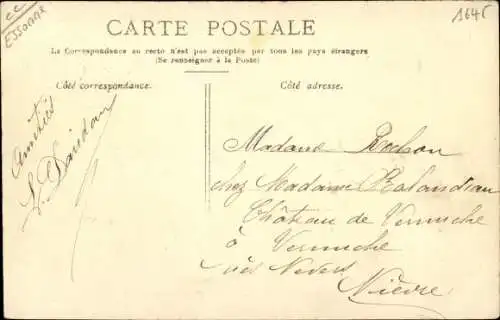 CC
ESSONNE
1645
CARTE POSTALE
La Correspondance au recto n'est pas acceptée par tous les pays étrangers
(Se renseigner à la Poste)
Côté correspondance.
Côté adresse.
Amitiés
Madame Rochon
chez Madame
Château de Vernuche
à Vernuche
près Nevers
Nièvre